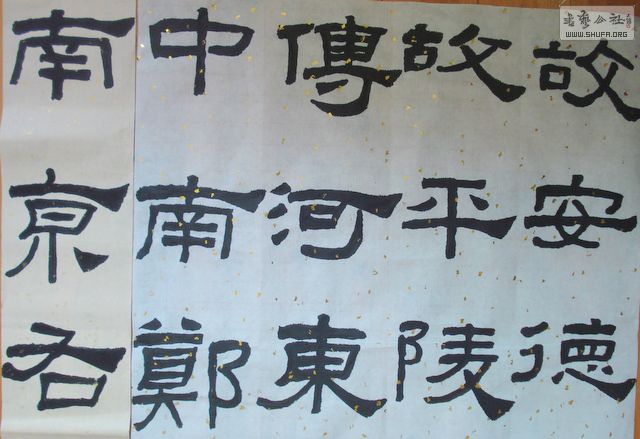 書藝公社
WWW.SHUFA.ORG
故安德
故平陵
傅河東
中南鄭
南京右